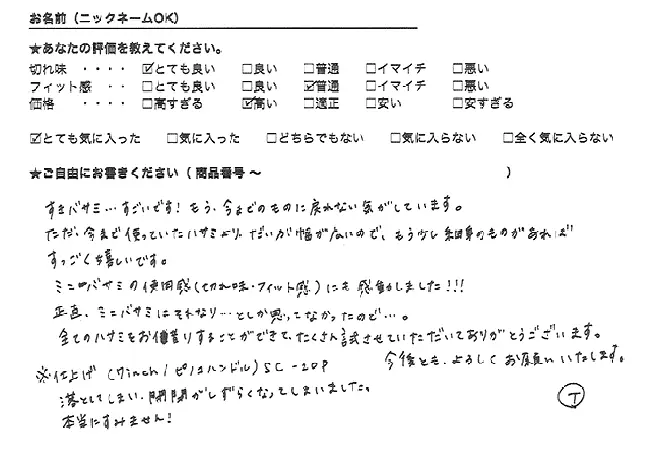 お名前（ニックネームOK）
★あなたの評価を教えてください。
切れ味 ・・・・ ☑とても良い □良い □普通 □イマイチ □悪い
フィット感 ・・ □とても良い □良い ☑普通 □イマイチ □悪い
価格 ・・・・ □高すぎる ☑高い □適正 □安い □安すぎる
☑とても気に入った □気に入った □どちらでもない □気に入らない □全く気に入らない
★ご自由にお書きください（ 商品番号 〜 ）
すきバサミ…すごいです！もう、今までのものに戻れない気がしています。
ただ、今まで使っていたハサミより、だいぶ幅が広いので、もう少し細身のものがあれば
すっごく嬉しいです。
ミニバサミの使用感（切れ味・フィット感）にも感動しました!!!
正直、ミニバサミはそれなり…としか思ってなかったので…。
全てのハサミをお値引りすることができて、たくさん試させていただいてありがとうございます。
今後とも、よろしくお願いいたします。
※仕上げ（7inch/ピノコハンドル）SC-20P
落としてしまい、開閉がしずらくなってしまいました。
本当にすみません！